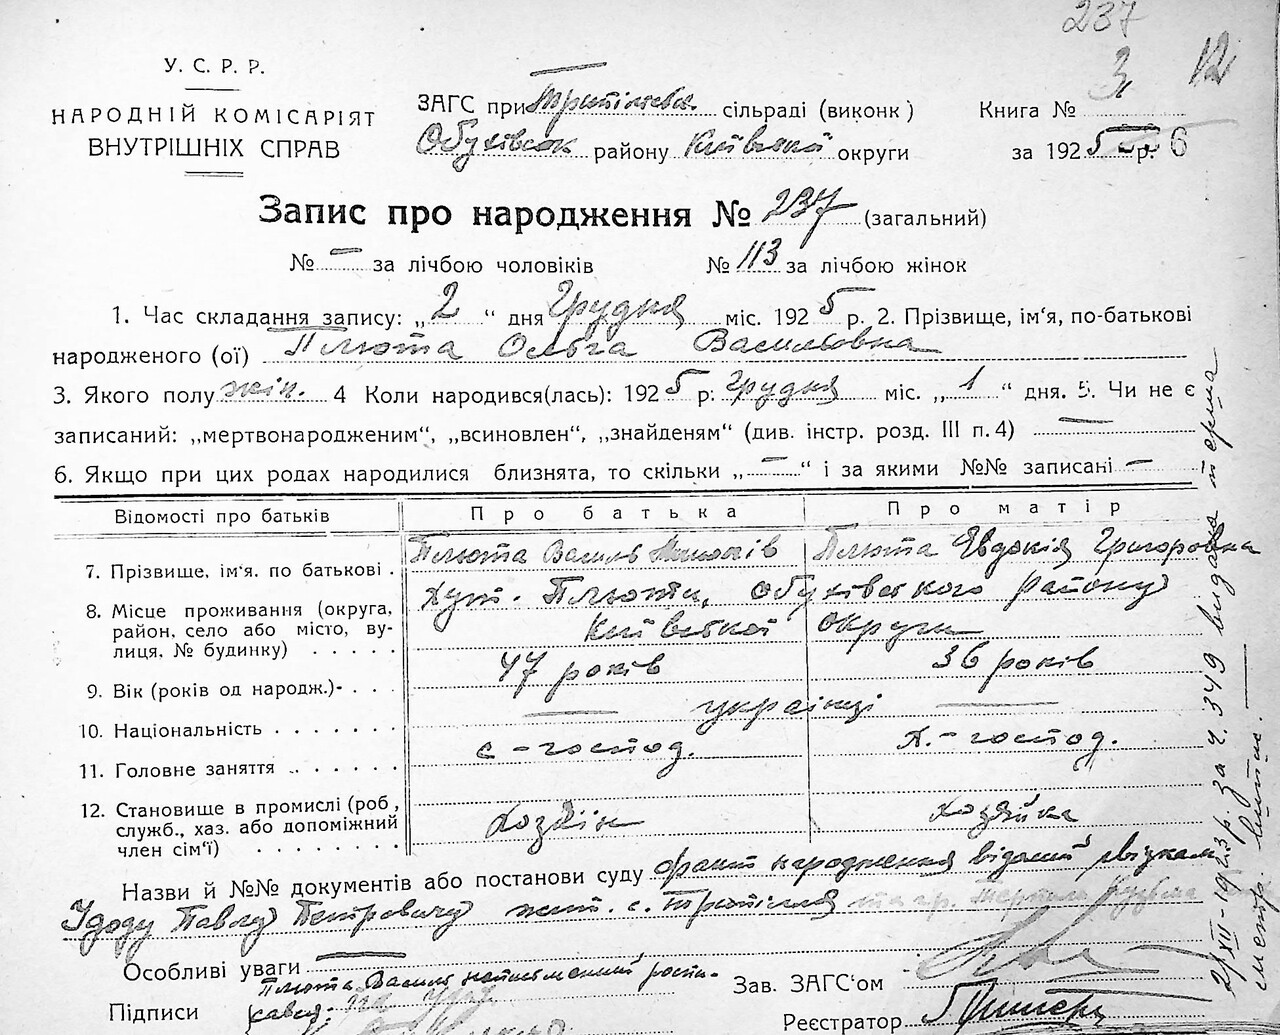 237
12
У. С. Р. Р.
НАРОДНІЙ КОМІСАРІЯТ
ВНУТРІШНІХ СПРАВ
ЗАГС при сільраді (виконк )
Обухівськ району Київської округи
Книга № 3
за 1925 р. 6
Запис про народження № 237 (загальний)
№ — за лічбою чоловіків № 113 за лічбою жінок
1. Час складання запису: „ 2 “ дня Грудня міс. 1925 р. 2. Прізвище, ім'я, по-батькові
народженого (ої) Плюта Ольга Васильовна
3. Якого полу жін. 4 Коли народився(лась): 1925 р. Грудня міс. „ 1 “ дня. 5. Чи не є
записаний: „мертвонародженим“, „всиновлен“, „знайденям“ (див. інстр. розд. III п. 4) —
6. Якщо при цих родах народилися близнята, то скільки „ — “ і за якими №№ записані —
Відомості про батьків Про батька Про матір
7. Прізвище, ім'я, по батькові . Плюта Василь Плюта Евдокія Григоровна
8. Місце проживання (округа, хут. Плюти, Обухівського району
район, село або місто, ву- Київської округи
лиця, № будинку) . . . . .
9. Вік (років од народж.)- . . . 47 років 36 років
10. Національність . . . . . . . — українці —
11. Головне заняття . . . . . . . с-господ. х.-господ.
12. Становище в промислі (роб.,
служб., хаз. або допоміжний хозяін хозяйка
член сім'ї) . . . . . . . .
Назви й №№ документів або постанови суду факт народження відомий свідкам
Удоду Павлу Петровичу жит. с. Трипілля та гр.
Особливі уваги —
Плюта Василь
Зав. ЗАГС'ом
Підписи
Реєстратор
за ч. 349 видана